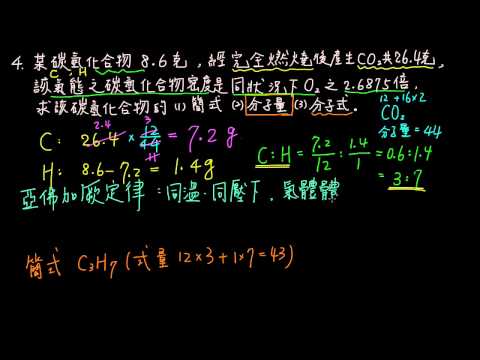 4. 某碳氫化合物 8.6克，經完全燃燒後產生CO₂共26.4克，
C H
該氣態之碳氫化合物密度是同狀況下O₂之2.6875倍，
求該碳氫化合物的 (1) 簡式 (2) 分子量 (3) 分子式。
12+16×2
CO₂
分子量=44
2.4
C： 26.4 × 12/44 = 7.2 g
11
H： 8.6-7.2 = 1.4g
C:H = 7.2/12 : 1.4/1 = 0.6:1.4
= 3:7
亞佛加厥定律：同溫．同壓下，氣體體
簡式 C₃H₇ (式量 12×3+1×7=43)